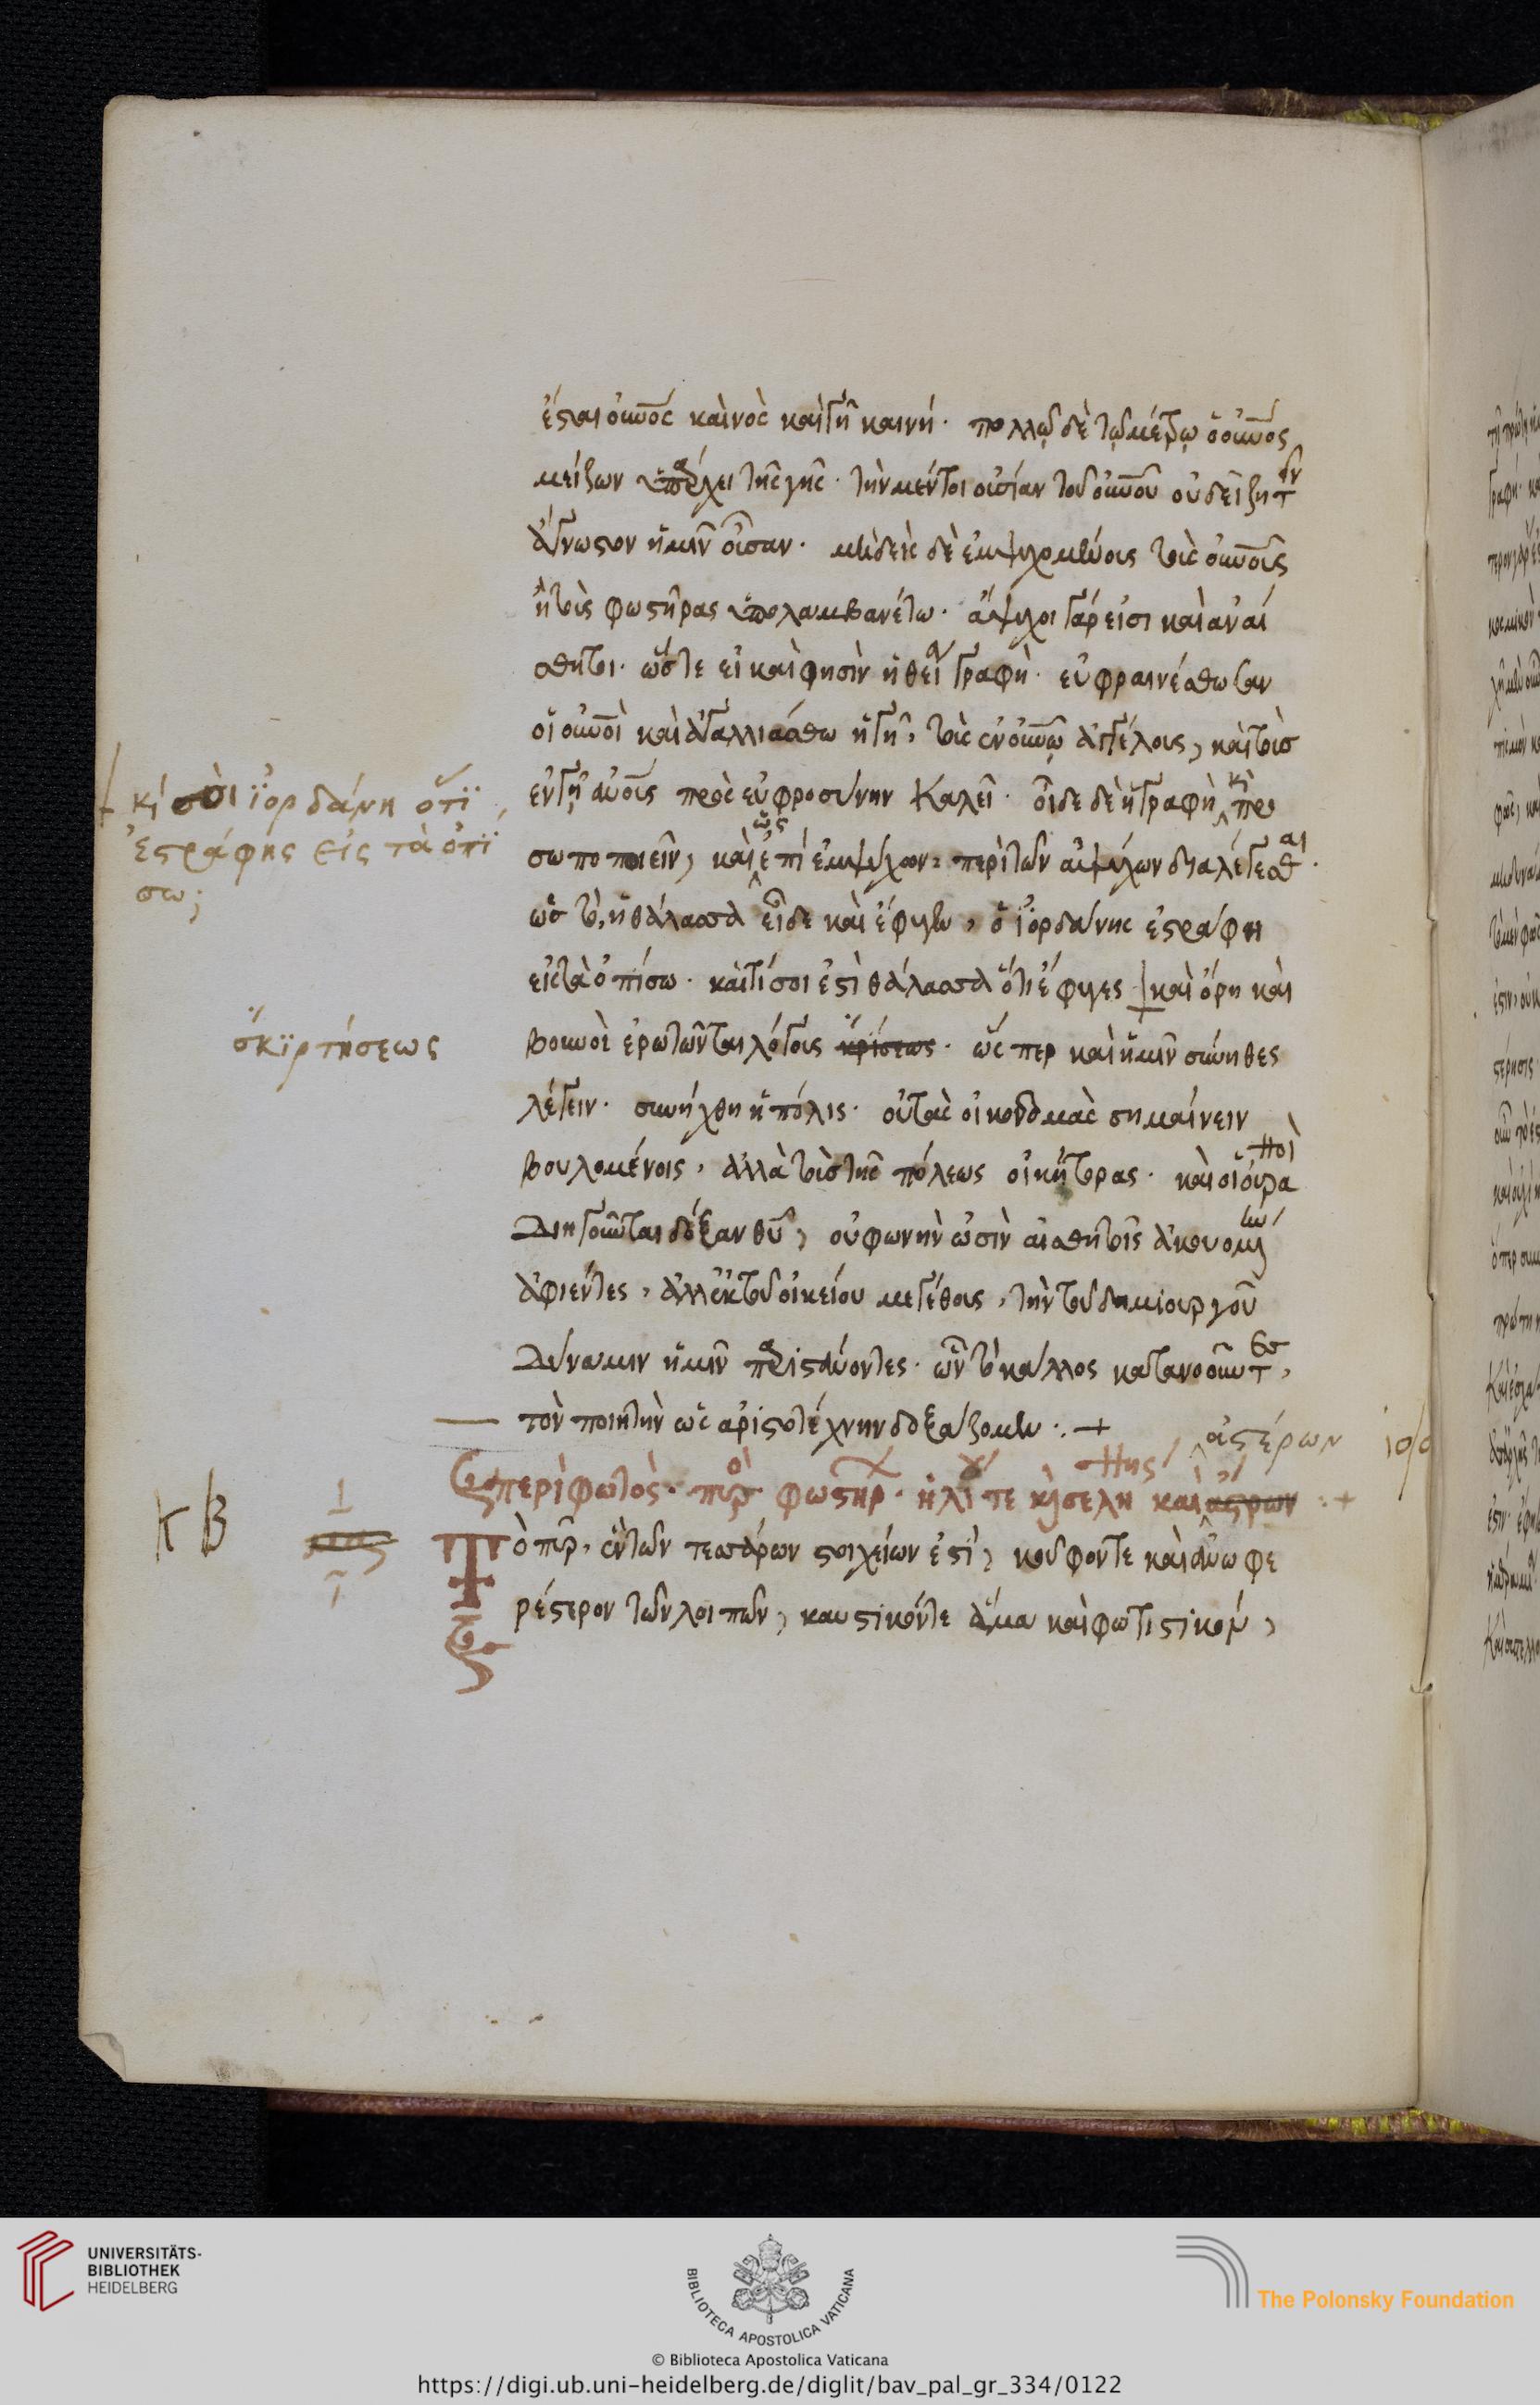 ἔσται οὐνος καὶνὸς καὶ γῆ καινή· πολλῷ δὲ τῷ μέτρῳ ὁ οὐνος
μείζων ὑπάρχει τῆς γῆς· τὴν μέντοι οὐσίαν τοῦ οὐνου οὐ δεῖ ζητεῖν
ἄγνωστον ἡμῖν οὖσαν· μὴδεὶς δὲ ἐμψυχομένους τοὺς οὐνους
ἢ τοὺς φωστῆρας ὑπολαμβανέτω· ἄψυχοι γάρ εἰσι καὶ αναί
σθητοι· ὥστε εἰ καὶ φησὶν ἡ θεία γραφὴ· εὐφραινέσθωσαν
οἱ οὐνοὶ καὶ ἀγαλλιάσθω ἡ γῆ, τοὺς ἐν οὐνῷ ἀγγέλους, καὶ τοὺσ
ἐν γῇ ἀνους πρὸς εὐφροσύνην καλεῖ· οἶδε δὲ ἡ γραφὴ κὶ προ
σωποποιεῖν, καὶ ὡς ἐπὶ ἐμψύχων περὶ τῶν ἀψύχων διαλέγεσθαι·
ὡσ τὸ, ἡ θάλασσα εἶδε καὶ ἔφυγεν, ὁ ἰορδάνης ἐστράφη
εἰς τὰ ὀπίσω· καὶ τί σοι ἐστὶ θάλασσα ὅτι ἔφυγες καὶ ὄρη καὶ
κὶ σὸι ἰορδάνη ὅτϊ
ἐστράφης εἰς τὰ ὀπί
σω;
βουνοὶ ἐρωτῶνται λόγους κρίσεως· ὥς περ καὶ ἡμῖν σύνηθες
σκϊρτήσεως
λέγειν· συνήχθη ἡ πόλις· οὐ τὰς οἰκοδομὰς σημαίνειν
βουλομένοις, ἀλλὰ τοὺς τῆς πόλεως οἰκήτορας· καὶ οἱ οὐρανοὶ
διηγοῦνται δόξαν θυ, οὐ φωνὴν ὠσὶν αἰσθητοῖς ἀκουομένην
ἀφιέντες, ἀλλ' ἐκ τοῦ οἰκείου μεγέθους, τὴν τοῦ δημιουργοῦ
δύναμιν ἡμῖν παριστάνοντες· ὧν τὸ κάλλος κατανοοῦντες,
τὸν ποιητὴν ὡς ἀριστοτέχνην δοξάζομεν :+
ἀστέρων
περὶ φωτὸς· πυρὸς φωστήρων· ἡλίου τε κὶ σελήνης καὶ ἄστρων :+
κβ
Τὸ πῦρ, ἓν τῶν τεσσάρων στοιχείων ἐστὶ, κοῦφον τε καὶ ἀνωφε
ρέστερον τῶν λοιπῶν, καυστικόν τε ἅμα καὶ φωτιστικόν,
UNIVERSITÄTS-
BIBLIOTHEK
HEIDELBERG
BIBLIOTECA APOSTOLICA VATICANA
The Polonsky Foundation
© Biblioteca Apostolica Vaticana
https://digi.ub.uni-heidelberg.de/diglit/bav_pal_gr_334/0122